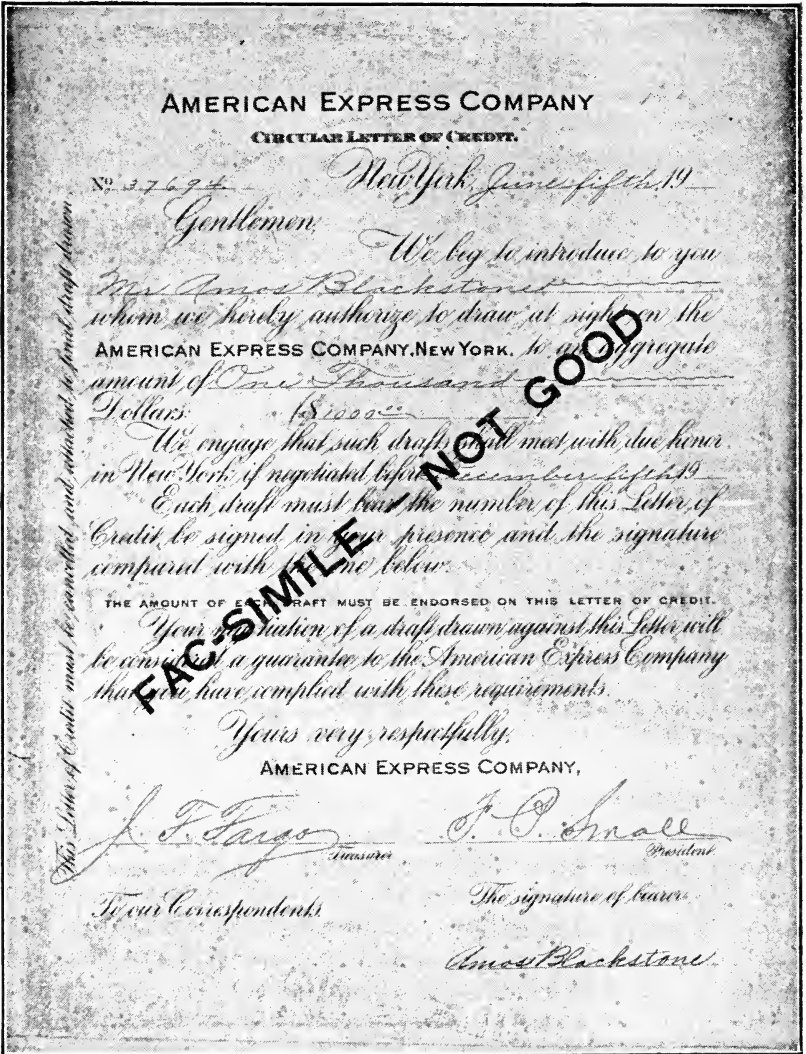 AMERICAN EXPRESS COMPANY
CIRCULAR LETTER OF CREDIT.
No 37694 New York, June fifth 19
Gentlemen,
We beg to introduce to you
Mr Amos Blackstone
whom we hereby authorize to draw at sight on the
AMERICAN EXPRESS COMPANY, NEW YORK, to an aggregate
amount of One Thousand
Dollars. ($1000 00
We engage that such drafts shall meet with due honor
in New York if negotiated before December fifth 19
Each draft must bear the number of this Letter of
Credit, be signed in your presence and the signature
compared with the one below.
THE AMOUNT OF EACH DRAFT MUST BE ENDORSED ON THIS LETTER OF CREDIT.
Your negotiation of a draft drawn against this Letter will
be considered a guarantee to the American Express Company
that you have complied with these requirements.
Yours very respectfully,
AMERICAN EXPRESS COMPANY,
J. F. Fargo F. P. Small
Treasurer President
To our Correspondents. The signature of bearer
Amos Blackstone
This Letter of Credit must be cancelled and attached to final draft drawn
FAC-SIMILE - NOT GOOD